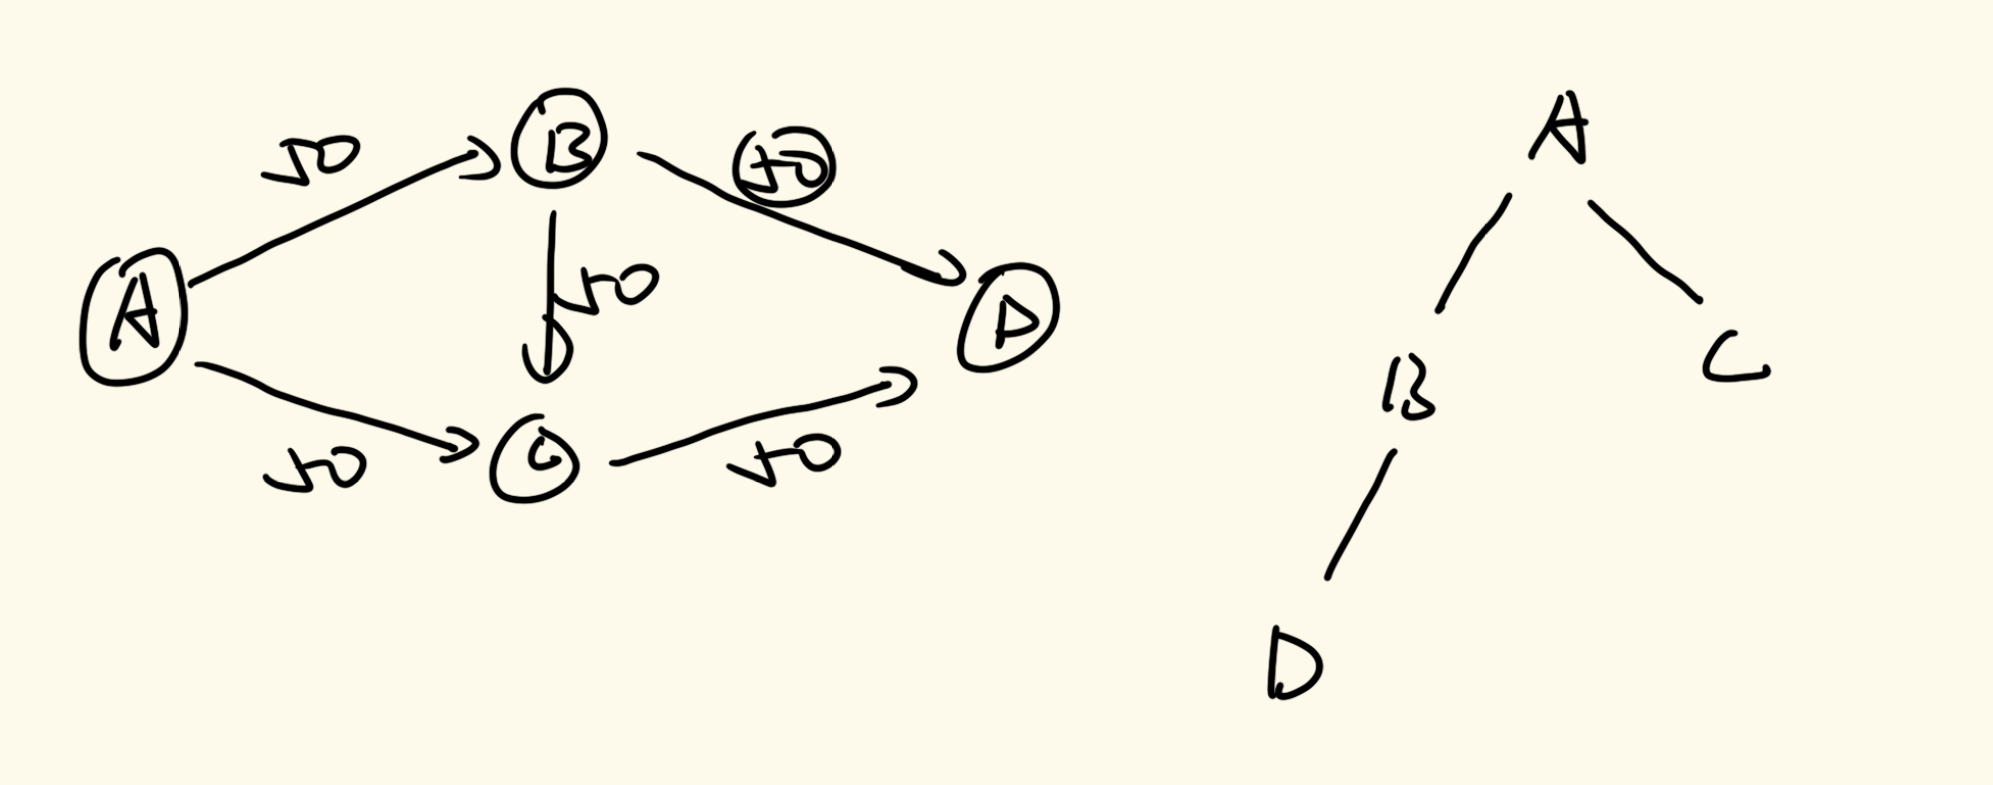 50
B
50
A
50
D
50
C
50
A
B
C
D